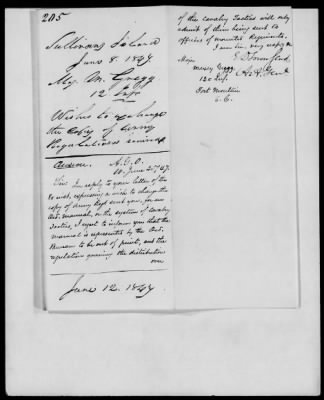 205
Sullivans Island
June 8. 1847
Maj. M. Gregg
12 Infy
Wishes to exchange
the copy of Army
Regulations received
Answer.
A.G.O.
W. June 1847.
Sir: In reply to your letter of the
8th inst, expressing a wish to change the
copy of Army Regs sent you, for an
Art. manual, or the system of Cavalry
Tactics, I regret to inform you that the
manual is represented by the Ord.
Bureau to be out of print, and the
regulation governing the distribution
over
June 12. 1847
of the Cavalry Tactics will only
admit of them being sent to
officers of mounted Regiments.
I am Sir, very resp
Major
Maxcy Gregg
12th Inf.
Fort Moultrie
S.C.